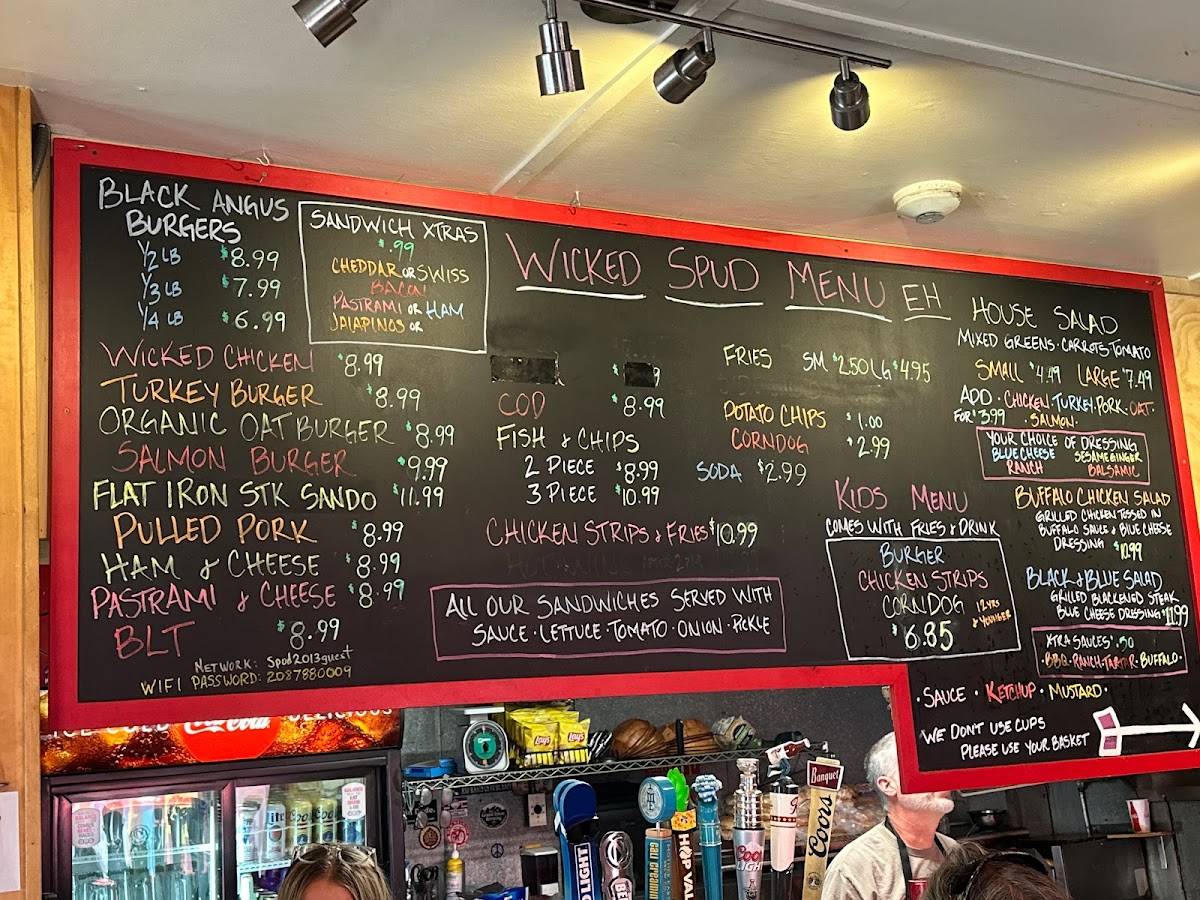 BLACK ANGUS
BURGERS
1/2 LB $8.99
1/3 LB $7.99
1/4 LB $6.99
SANDWICH XTRAS
$.99
CHEDDAR OR SWISS
BACON
PASTRAMI OR HAM
JALAPINOS OR
WICKED CHICKEN $8.99
TURKEY BURGER $8.99
ORGANIC OAT BURGER $8.99
SALMON BURGER $9.99
FLAT IRON STK SANDO $11.99
PULLED PORK $8.99
HAM & CHEESE $8.99
PASTRAMI & CHEESE $8.99
BLT $8.99
NETWORK: Spud2013guest
WIFI PASSWORD: 2087880009
WICKED SPUD MENU EH
COD $8.99
FISH & CHIPS
2 PIECE $8.99
3 PIECE $10.99
CHICKEN STRIPS & FRIES $10.99
ALL OUR SANDWICHES SERVED WITH
SAUCE · LETTUCE · TOMATO · ONION · PICKLE
FRIES SM $2.50 LG $4.95
POTATO CHIPS $1.00
CORNDOG $2.99
SODA $2.99
KIDS MENU
COMES WITH FRIES & DRINK
BURGER
CHICKEN STRIPS
CORNDOG
12 YRS
& YOUNGER
$6.85
HOUSE SALAD
MIXED GREENS · CARROTS TOMATO
SMALL $4.49 LARGE $7.49
ADD · CHICKEN, TURKEY, PORK, OAT ·
FOR $3.99 · SALMON ·
YOUR CHOICE OF DRESSING
BLUE CHEESE SESAME GINGER
RANCH BALSAMIC
BUFFALO CHICKEN SALAD
GRILLED CHICKEN TOSSED IN
BUFFALO SAUCE & BLUE CHEESE
DRESSING $10.99
BLACK & BLUE SALAD
GRILLED BLACKENED STEAK
BLUE CHEESE DRESSING $11.99
XTRA SAUCES · .50
· BBQ · RANCH · TARTAR · BUFFALO ·
· SAUCE · KETCHUP · MUSTARD ·
WE DON'T USE CUPS
PLEASE USE YOUR BASKET
Coca-Cola
DELICIOUS
Lay's
Lay's
Banquet
Coors
LIGHT
Coors
LIGHT